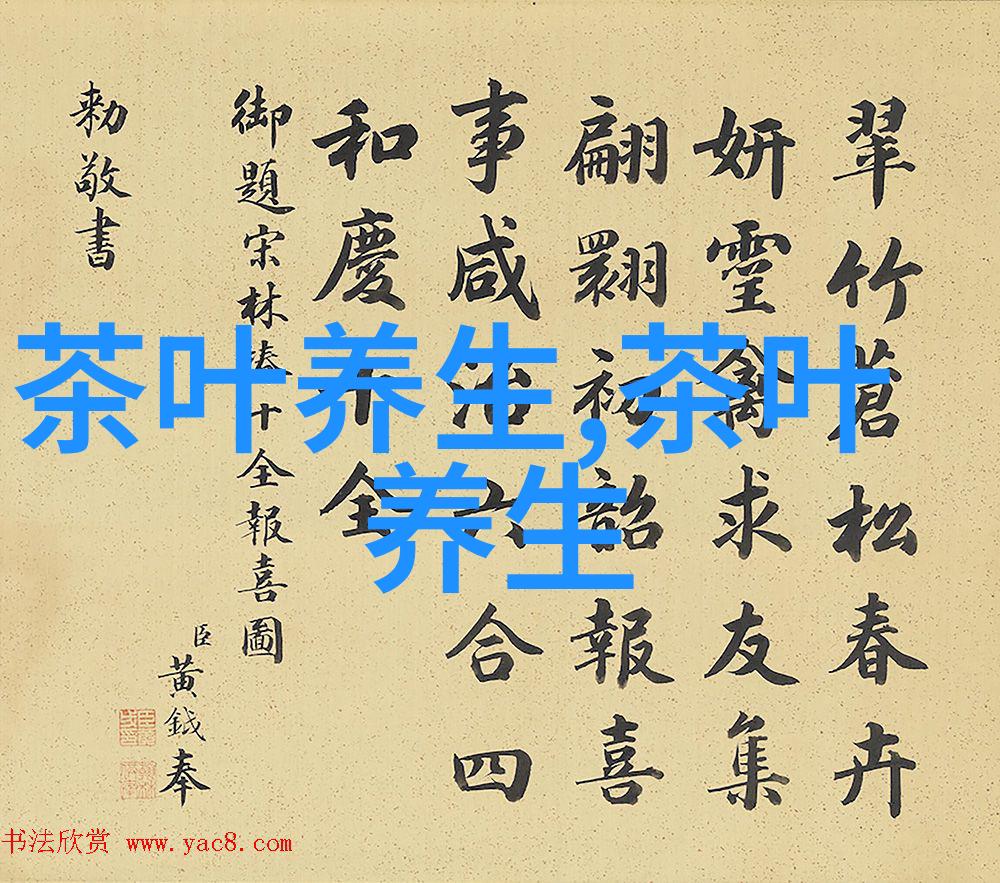 翆竹蒼松春卉
妍靈禽求友集
翩翾初韶報喜
事咸洽六合四
和慶十全
御題宋林椿十全報喜圖
臣黃鉞奉
勅敬書
茶叶养生,茶叶
养生
书法欣赏 www.yac8.com